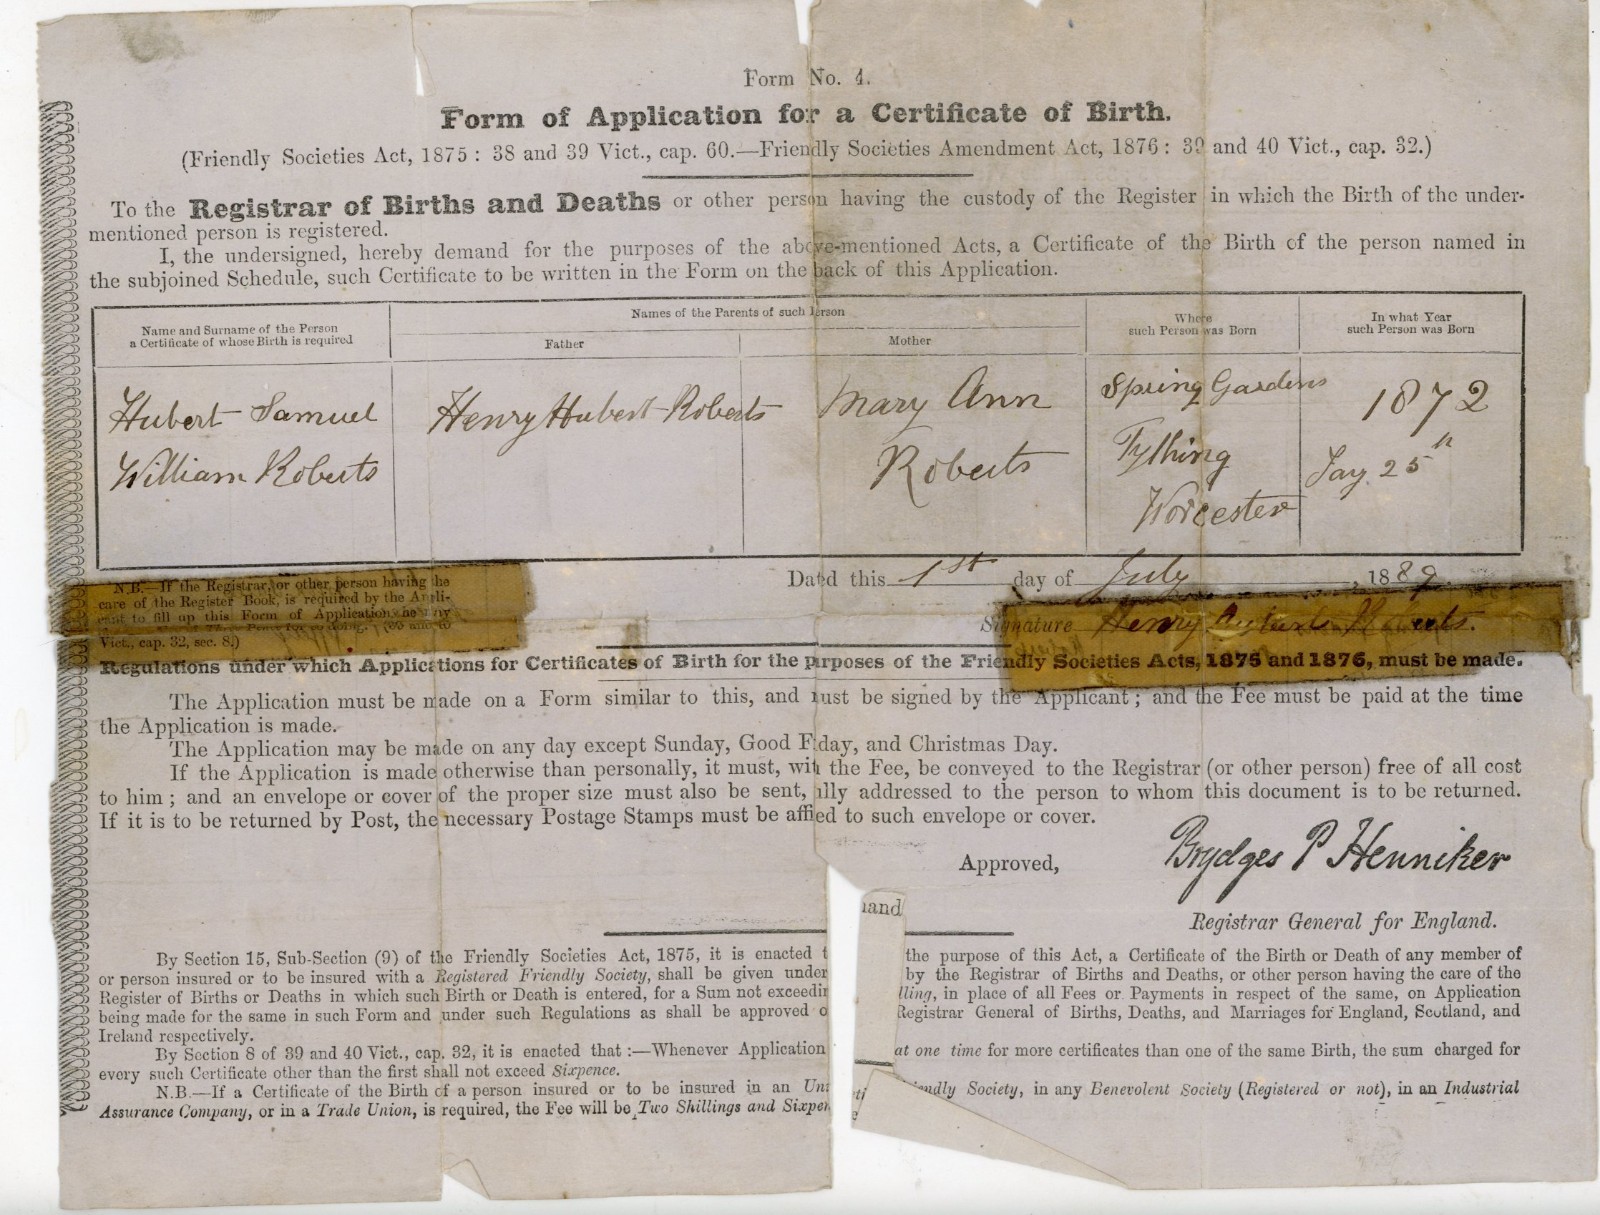 Form No. 4.
Form of Application for a Certificate of Birth.
(Friendly Societies Act, 1875: 38 and 39 Vict., cap. 60.—Friendly Societies Amendment Act, 1876: 39 and 40 Vict., cap. 32.)
To the Registrar of Births and Deaths or other person having the custody of the Register in which the Birth of the under-
mentioned person is registered.
I, the undersigned, hereby demand for the purposes of the above-mentioned Acts, a Certificate of the Birth of the person named in
the subjoined Schedule, such Certificate to be written in the Form on the back of this Application.
Name and Surname of the Person
a Certificate of whose Birth is required
Names of the Parents of such Person
Father
Mother
Where
such Person was Born
In what Year
such Person was Born
Hubert Samuel
William Roberts
Henry Hubert Roberts
Mary Ann
Roberts
Spring Gardens
Tything
Worcester
1872
25th
Dated this 1st day of July, 1889.
N.B.—If the Registrar, or other person having the
care of the Register Book, is required by the Appli-
cant to fill up this Form of Application, he may
Vict., cap. 32, sec. 8.)
Signature Henry Roberts.
Regulations under which Applications for Certificates of Birth for the purposes of the Friendly Societies Acts, 1875 and 1876, must be made.
The Application must be made on a Form similar to this, and must be signed by the Applicant; and the Fee must be paid at the time
the Application is made.
The Application may be made on any day except Sunday, Good Friday, and Christmas Day.
If the Application is made otherwise than personally, it must, with the Fee, be conveyed to the Registrar (or other person) free of all cost
to him; and an envelope or cover of the proper size must also be sent, ully addressed to the person to whom this document is to be returned.
If it is to be returned by Post, the necessary Postage Stamps must be affied to such envelope or cover.
Approved,
Brydges P Henniker
Registrar General for England.
land
By Section 15, Sub-Section (9) of the Friendly Societies Act, 1875, it is enacted t the purpose of this Act, a Certificate of the Birth or Death of any member of
or person insured or to be insured with a Registered Friendly Society, shall be given under by the Registrar of Births and Deaths, or other person having the care of the
Register of Births or Deaths in which such Birth or Death is entered, for a Sum not exceedin lling, in place of all Fees or Payments in respect of the same, on Application
being made for the same in such Form and under such Regulations as shall be approved o Registrar General of Births, Deaths, and Marriages for England, Scotland, and
Ireland respectively.
By Section 8 of 39 and 40 Vict., cap. 32, it is enacted that:—Whenever Application at one time for more certificates than one of the same Birth, the sum charged for
every such Certificate other than the first shall not exceed Sixpence.
N.B.—If a Certificate of the Birth of a person insured or to be insured in an Un endly Society, in any Benevolent Society (Registered or not), in an Industrial
Assurance Company, or in a Trade Union, is required, the Fee will be Two Shillings and Sixpen